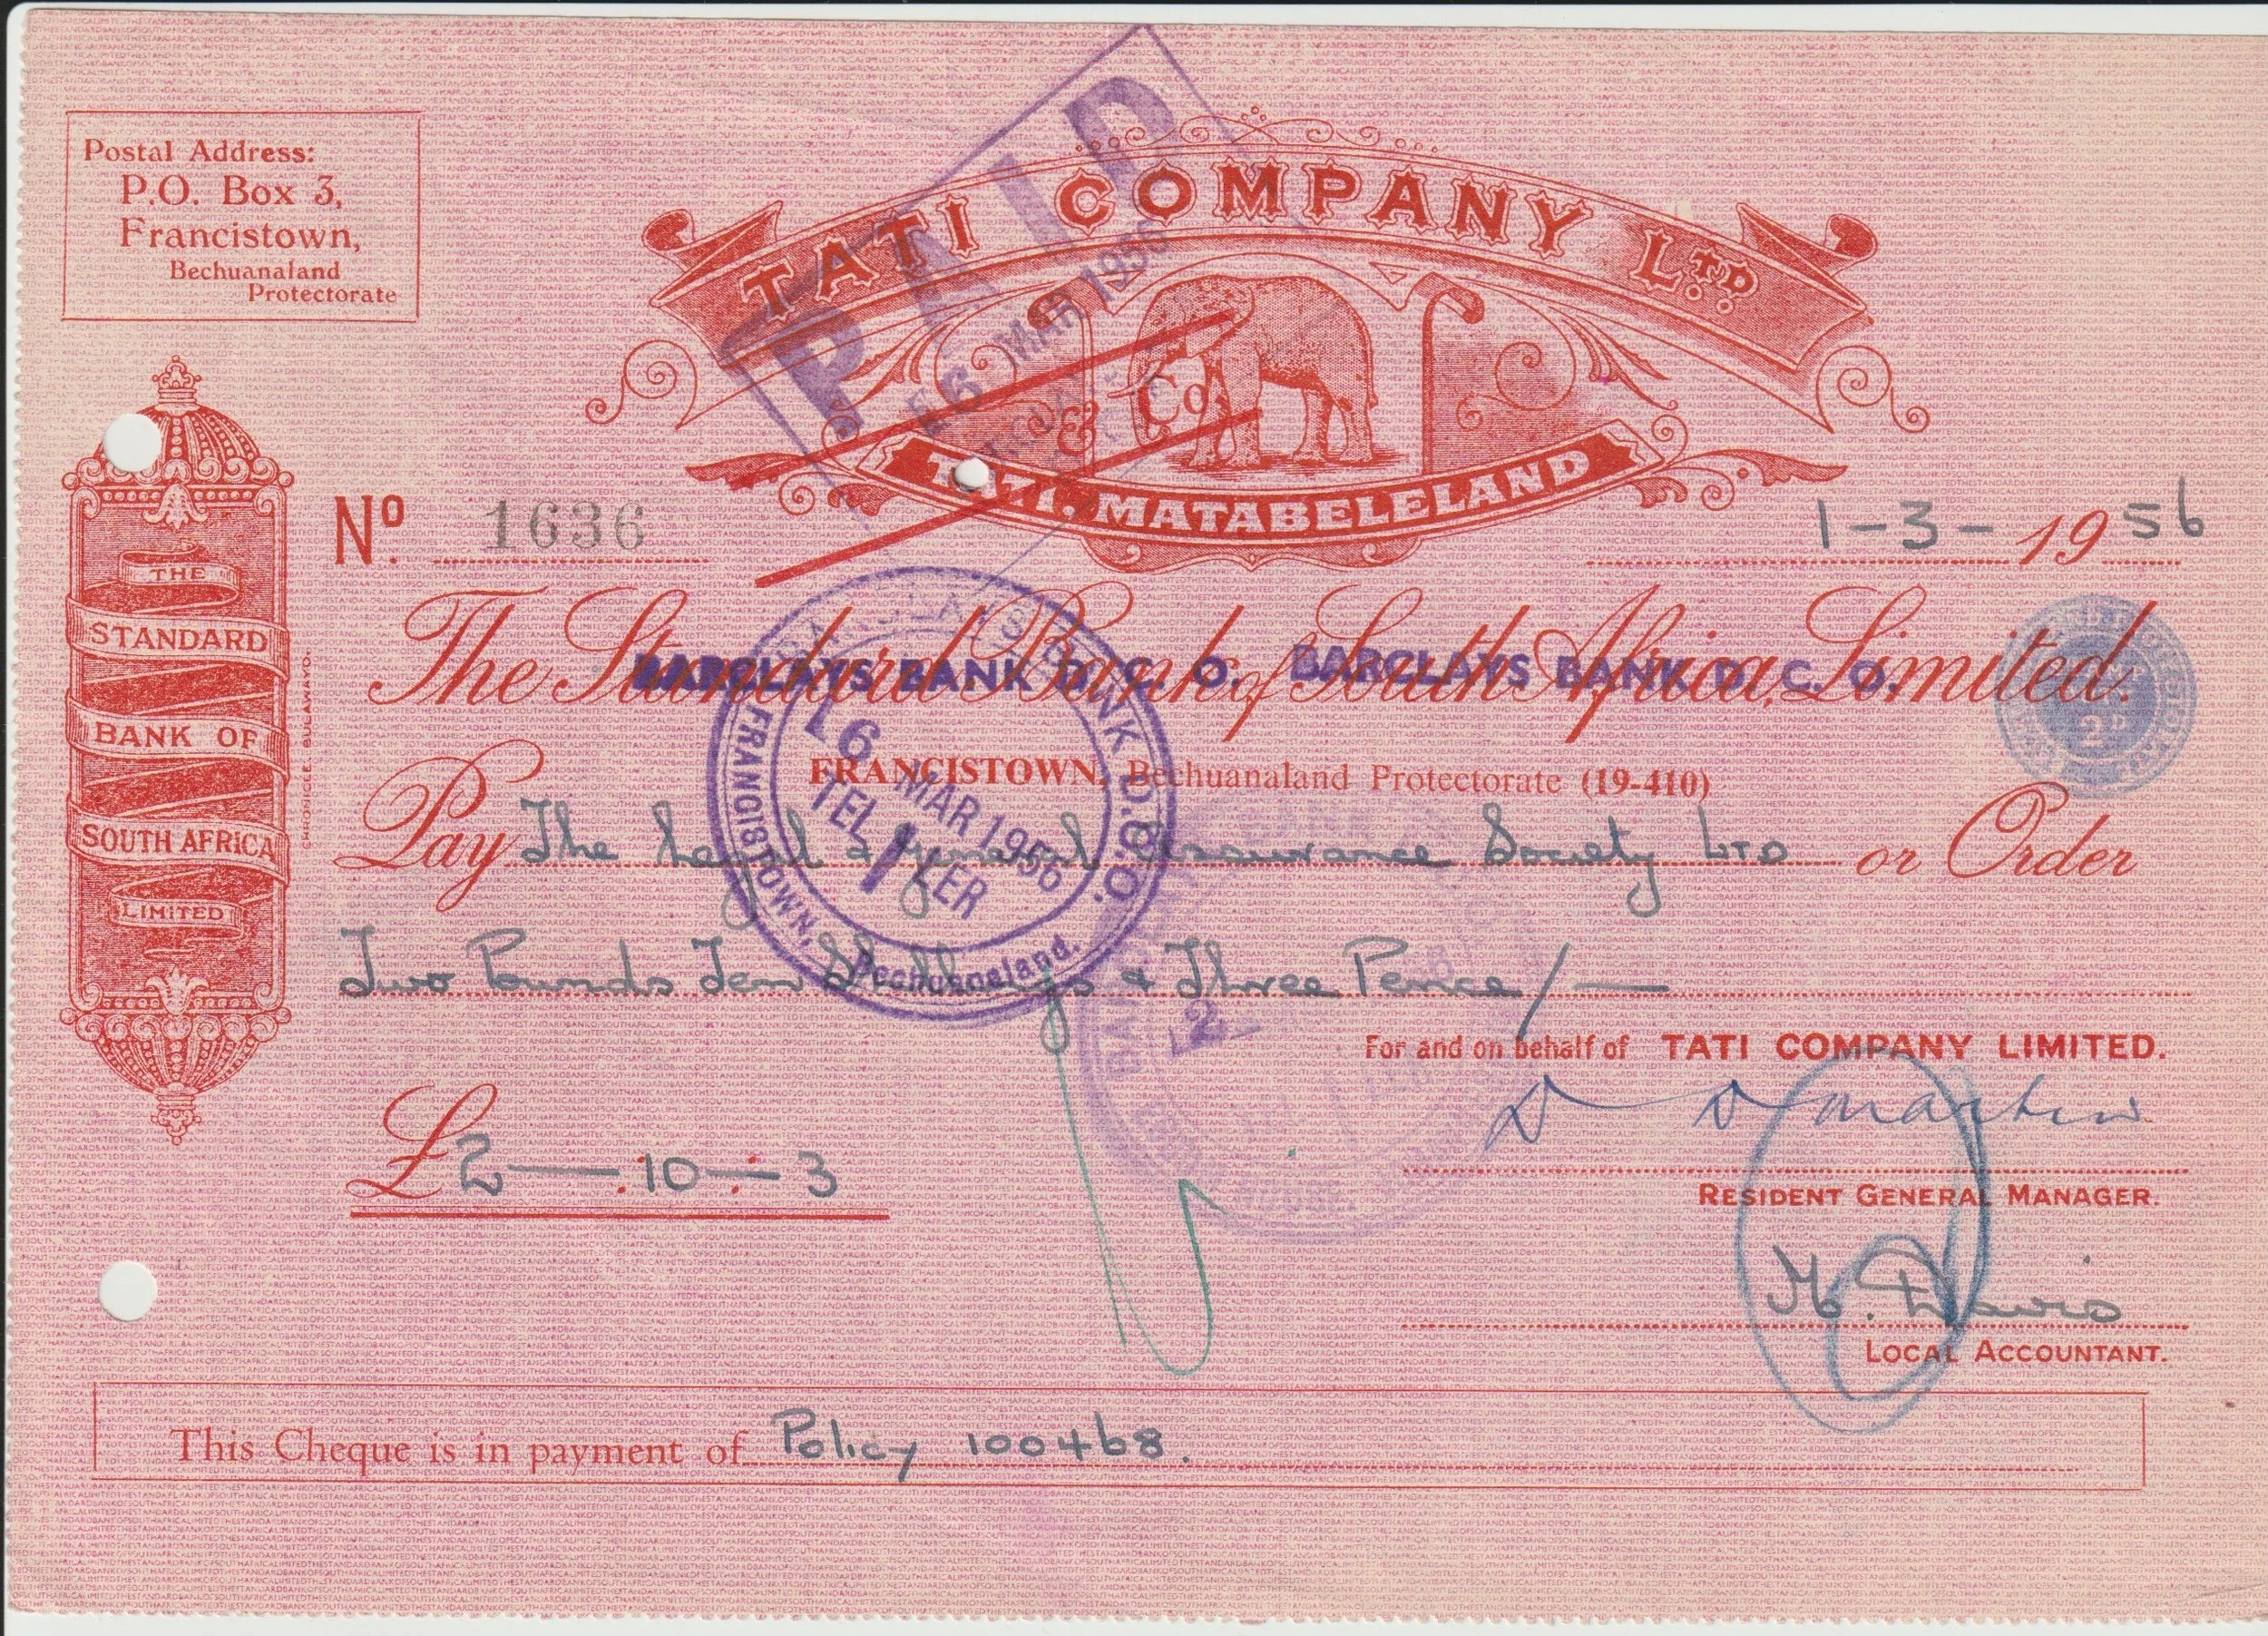 Postal Address:
P.O. Box 3,
Francistown,
Bechuanaland
Protectorate
PAID
16 MAR 1956
TATI COMPANY LTD
& Co.
TATI, MATABELELAND
No. 1636
1-3-1956
THE
STANDARD
BANK OF
SOUTH AFRICA
LIMITED
CHRONICLE, BULAWAYO.
The Standard Bank of South Africa, Limited.
BARCLAYS BANK D. C. O. BARCLAYS BANK D. C. O.
2D
FRANCISTOWN, Bechuanaland Protectorate (19-410)
BARCLAYS BANK D.C.O.
16 MAR 1956
TELLER
1
FRANCISTOWN, Bechuanaland.
Pay The Legal & General Assurance Society LTD or Order
Two Pounds Ten Shillings & Three Pence/—
2
For and on behalf of TATI COMPANY LIMITED.
D D Martin
£2—:10—:3
RESIDENT GENERAL MANAGER.
H. Davis
LOCAL ACCOUNTANT.
This Cheque is in payment of Policy 100468.